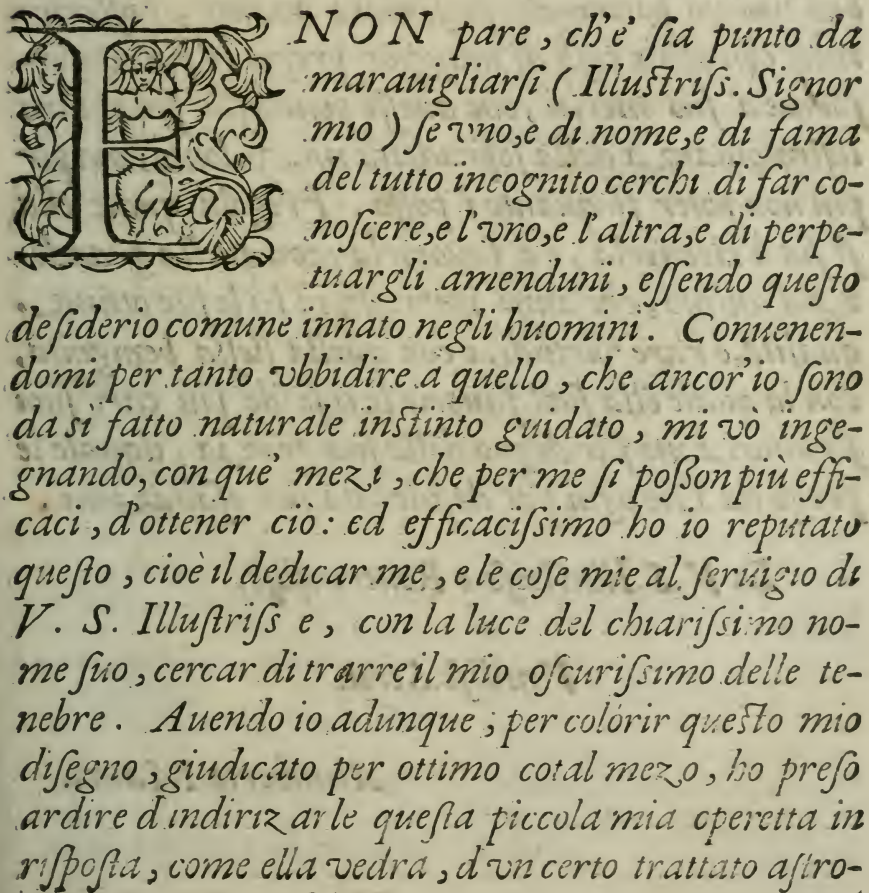 E NON pare, ch'e' ſia punto da
marauigliarſi (Illuſtriſs. Signor
mio) ſe vno, e di nome, e di fama
del tutto incognito cerchi di far co-
noſcere, e l'vno, e l'altra, e di perpe-
tuargli amenduni, eſſendo queſto
deſiderio comune innato negli huomini. Conuenen-
domi per tanto vbbidire a quello, che ancor'io ſono
da sì fatto naturale inſtinto guidato, mi vò inge-
gnando, con que' mezi, che per me ſi poſſon più effi-
caci, d'ottener ciò: ed efficaciſsimo ho io reputato
queſto, cioè il dedicar me, e le coſe mie al ſeruigio di
V. S. Illuſtriſs e, con la luce del chiariſsimo no-
me ſuo, cercar di trarre il mio oſcuriſsimo delle te-
nebre. Auendo io adunque, per colorir queſto mio
diſegno, giudicato per ottimo cotal mezo, ho preſo
ardire d'indirizarle queſta piccola mia operetta in
riſpoſta, come ella vedrà, d'vn certo trattato aſtro-